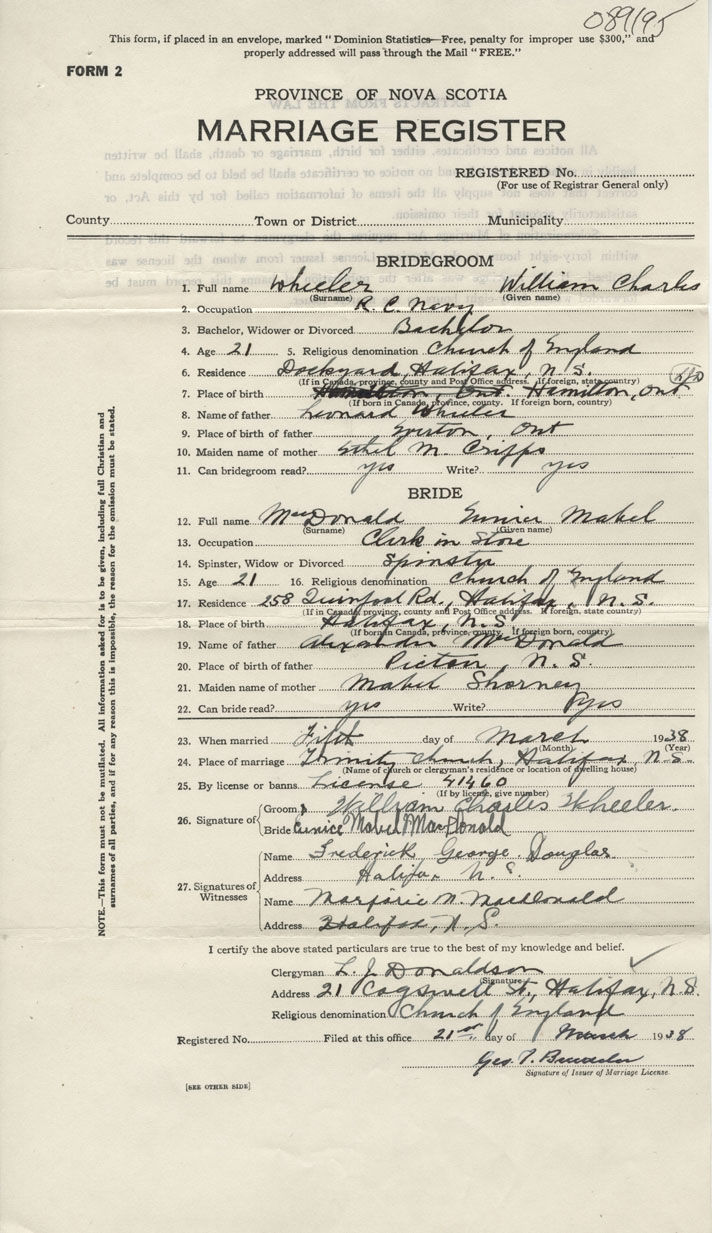 089195
This form, if placed in an envelope, marked "Dominion Statistics—Free, penalty for improper use $300," and
properly addressed will pass through the Mail "FREE."
FORM 2
PROVINCE OF NOVA SCOTIA
MARRIAGE REGISTER
REGISTERED No.
(For use of Registrar General only)
County Town or District Municipality
BRIDEGROOM
1. Full name Wheeler William Charles
(Surname) (Given name)
2. Occupation R. C. Navy
3. Bachelor, Widower or Divorced Bachelor
4. Age 21 5. Religious denomination Church of England
6. Residence Dockyard, Halifax, N. S.
(If in Canada, province, county and Post Office address. If foreign, state country)
7. Place of birth Hamilton, Ont. Hamilton, Ont
(If born in Canada, province, county. If foreign born, country)
8. Name of father Leonard Wheeler
9. Place of birth of father Everton, Ont
10. Maiden name of mother Ethel M. Cripps
11. Can bridegroom read? yes Write? yes
BRIDE
12. Full name MacDonald Eunice Mabel
(Surname) (Given name)
13. Occupation Clerk in Store
14. Spinster, Widow or Divorced Spinster
15. Age 21 16. Religious denomination Church of England
17. Residence 258 Quinpool Rd., Halifax, N. S.
(If in Canada, province, county and Post Office address. If foreign, state country)
18. Place of birth Halifax, N. S
(If born in Canada, province, county. If foreign born, country)
19. Name of father Alexander McDonald
20. Place of birth of father Pictou, N. S.
21. Maiden name of mother Mabel Shorney
22. Can bride read? yes Write? yes
23. When married Fifth day of March 1938
(Month) (Year)
24. Place of marriage Trinity Church, Halifax, N. S.
(Name of church or clergyman's residence or location of dwelling house)
25. By license or banns License 41460
(If by license, give number)
26. Signature of
Groom William Charles Wheeler.
Bride Eunice Mabel MacDonald
27. Signatures of Witnesses
Name Frederick George Douglas
Address Halifax N. S.
Name Marjorie N. MacDonald
Address Halifax, N. S.
I certify the above stated particulars are true to the best of my knowledge and belief.
Clergyman L. J. Donaldson
(Signature)
Address 21 Cogswell St., Halifax, N. S.
Religious denomination Church of England
Registered No. Filed at this office 21st day of March 1938
Geo. T.
Signature of Issuer of Marriage License.
[SEE OTHER SIDE]
NOTE.—This form must not be mutilated. All information asked for is to be given, including full Christian and
surnames of all parties, and if for any reason this is impossible, the reason for the omission must be stated.